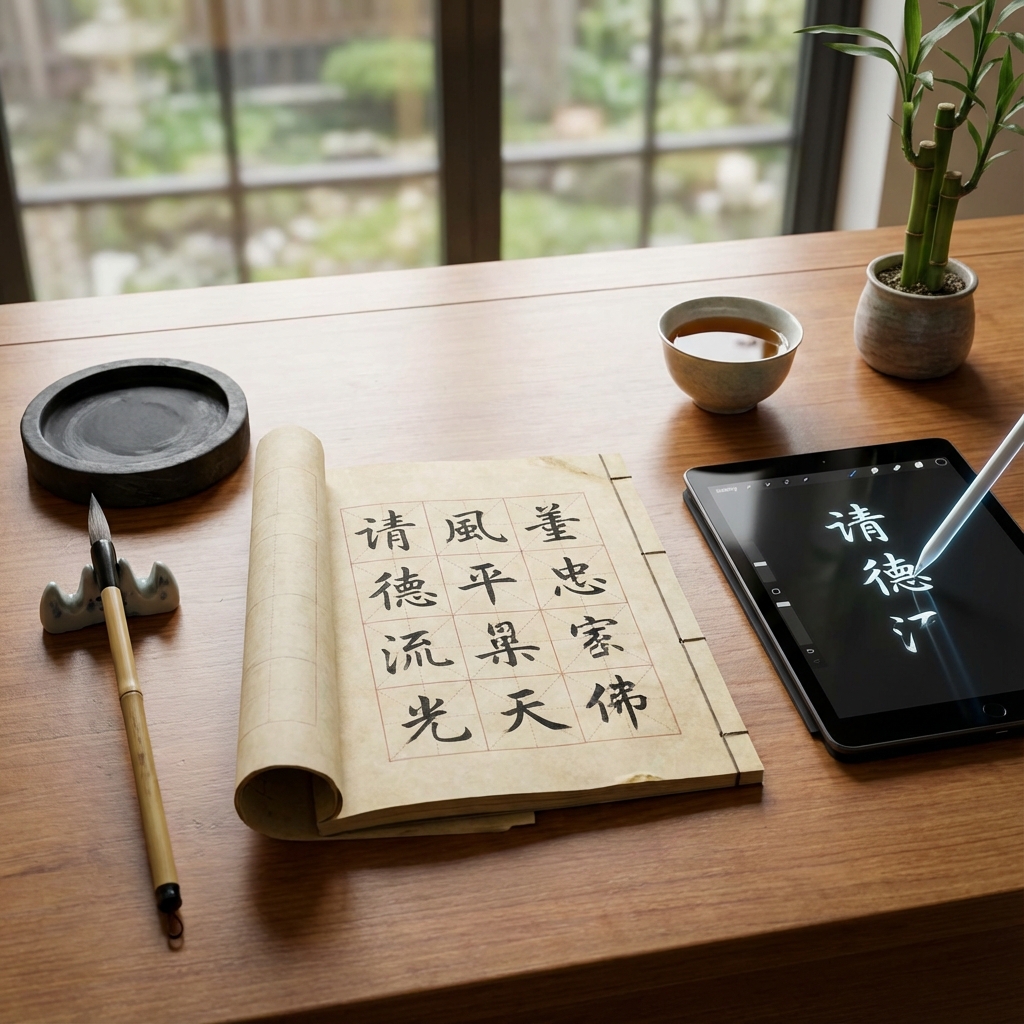 请風
德平忠
流家
光天佛
请
德